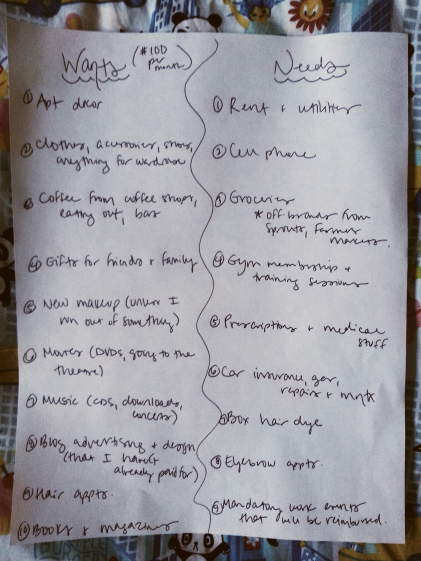 Wants ($100 per month)
① Apt decor
② Clothes, accessories, shoes,
anything for wardrobe
③ Coffee from coffee shops,
eating out, bars
④ Gifts for friends + family
⑤ New makeup (unless I
run out of something)
⑥ Movies (DVDs, going to the
theatre)
⑦ Music (CDs, downloads,
concerts)
⑧ Blog advertising + design
(that I haven't
already paid for)
⑨ Hair appts.
⑩ Books + magazines
Needs
① Rent + utilities
② Cell phone
③ Groceries
* Off brands from
sprouts, farmers
markets.
④ Gym membership +
training sessions
⑤ Prescriptions + medical
stuff
⑥ Car insurance, gas,
repairs + mntx
⑦ Box hair dye
⑧ Eyebrow appts.
⑨ Mandatory work events
that will be reimbursed.